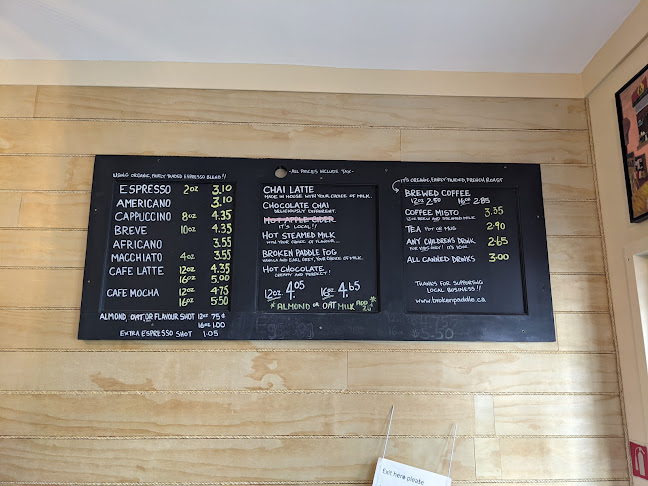 USING ORGANIC, FAIRLY TRADED ESPRESSO BLEND!!
ESPRESSO 2oz 3.10
AMERICANO 3.10
CAPPUCCINO 8oz 4.35
BREVE 10oz 4.35
AFRICANO 3.55
MACCHIATO 4oz 3.55
CAFE LATTE 12oz 4.35
16oz 5.00
CAFE MOCHA 12oz 4.75
16oz 5.50
ALMOND, OAT, OR FLAVOUR SHOT 12oz 75¢
16oz 1.00
EXTRA ESPRESSO SHOT 1.05
-ALL PRICES INCLUDE TAX-
CHAI LATTE
MADE IN HOUSE WITH YOUR CHOICE OF MILK.
CHOCOLATE CHAI
DELICIOUSLY DIFFERENT.
HOT APPLE CIDER
IT'S LOCAL!!
HOT STEAMED MILK
WITH YOUR CHOICE OF FLAVOUR...
BROKEN PADDLE FOG
VANILLA AND EARL GREY, YOUR CHOICE OF MILK.
HOT CHOCOLATE
CREAMY AND PERFECT!
12oz 4.05 16oz 4.65
*ALMOND OR OAT MILK ADD
IT'S ORGANIC, FAIRLY TRADED, FRENCH ROAST
BREWED COFFEE
12oz 2.50 16oz 2.85
COFFEE MISTO 3.35
12oz BREW AND STEAMED MILK
TEA POT OR MUG 2.90
ANY CHILDRENS DRINK 2.65
ALL CANNED DRINKS 3.00
THANKS FOR SUPPORTING
LOCAL BUSINESS!!
www.brokenpaddle.ca
Exit here please